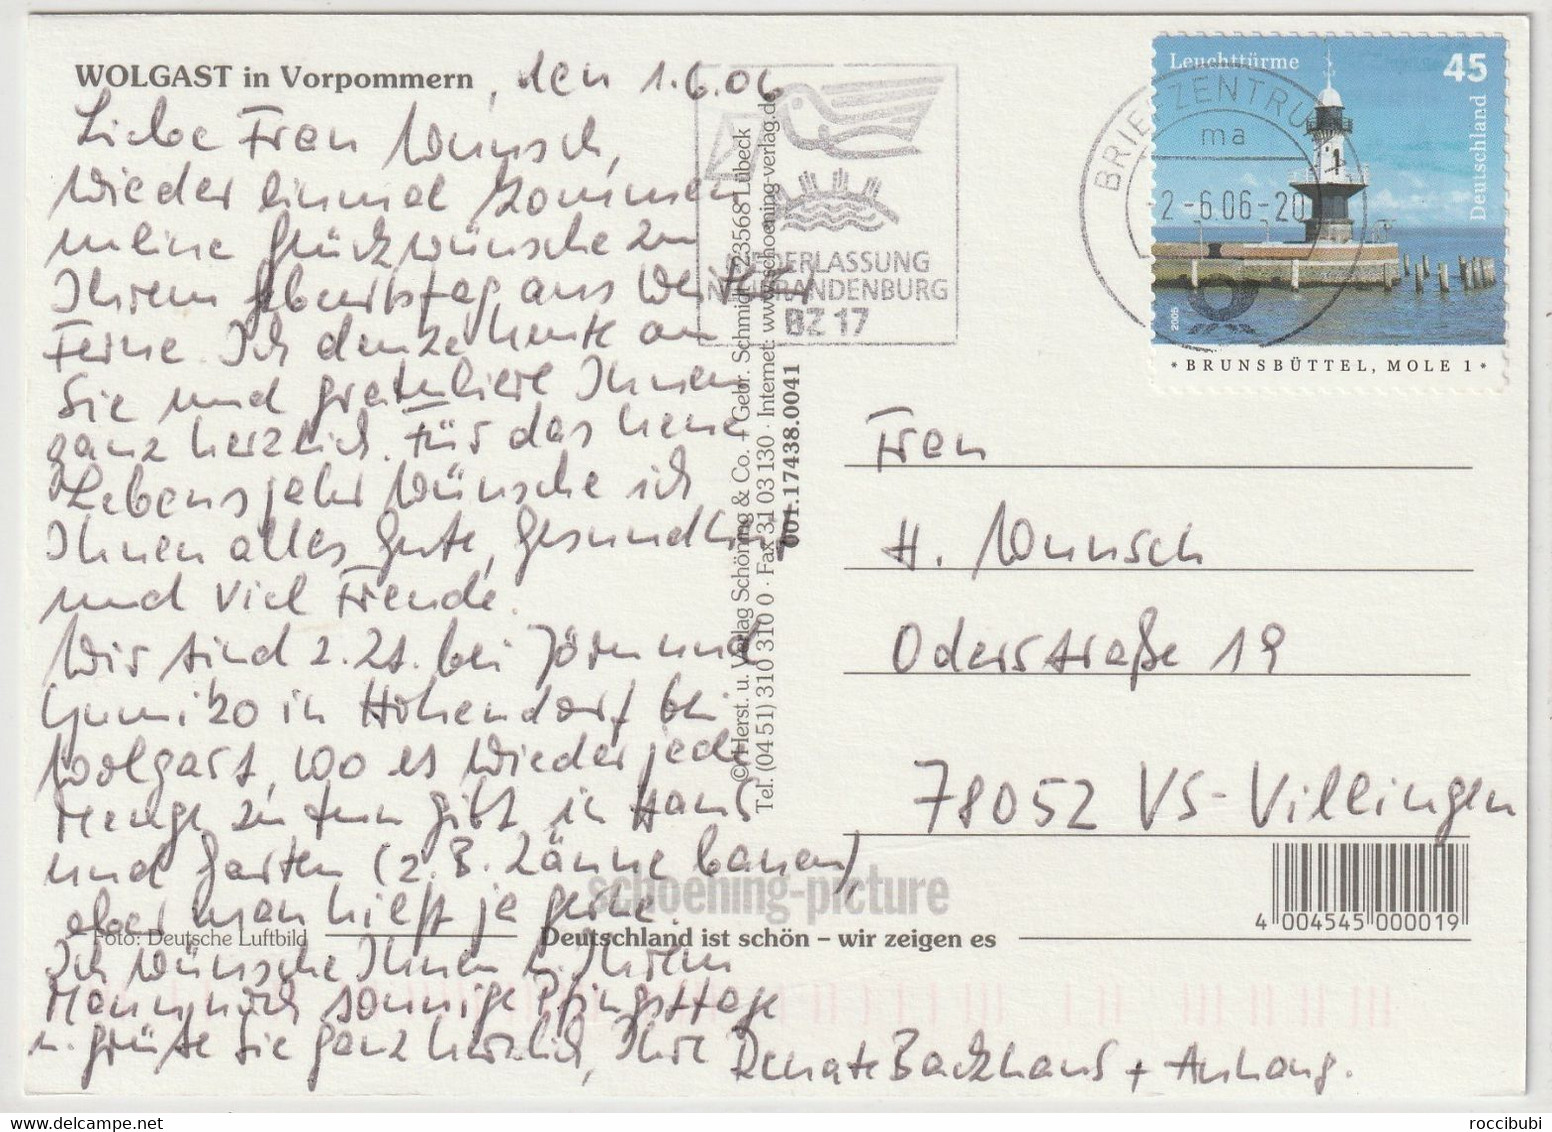 WOLGAST in Vorpommern, den 1.6.06
Liebe Frau Wunsch,
wieder einmal kommen
meine Glückwünsche zu
Ihrem Geburtstag aus weiter
Ferne. Ich denke heute an
Sie und gratuliere Ihnen
ganz herzlich. Für das neue
Lebensjahr wünsche ich
Ihnen alles Gute, Gesundheit
und viel Freude.
Wir sind z.Zt. bei Jörn und
in Hohendorf bei
Wolgast, wo es wieder jede
Menge zu tun gibt in Haus
und Garten (z.B. Zäune bauen),
aber man hilft ja gerne.
Foto: Deutsche Luftbild
Ich wünsche Ihnen u. Ihrem
Mann noch sonnige Pfingsttage
u. grüße Sie ganz herzlich, Ihre Renate Backhaus + Anhang.
© Herst. u. Verlag Schöning & Co. + Gebr. Schmidt · 23568 Lübeck
Tel. (04 51) 310 310 0 · Fax 31 03 130 · Internet: www.schoening-verlag.de
001.17438.0041
NIEDERLASSUNG
NEUBRANDENBURG
BZ 17
BRIEFZENTRUM
ma
-2.-6.06-20
Leuchttürme 45
Deutschland
2005
* BRUNSBÜTTEL, MOLE 1 *
Frau
H. Wunsch
Oderstraße 19
78052 VS-Villingen
schoening-picture
4 004545 000019
Deutschland ist schön – wir zeigen es
roccibubi